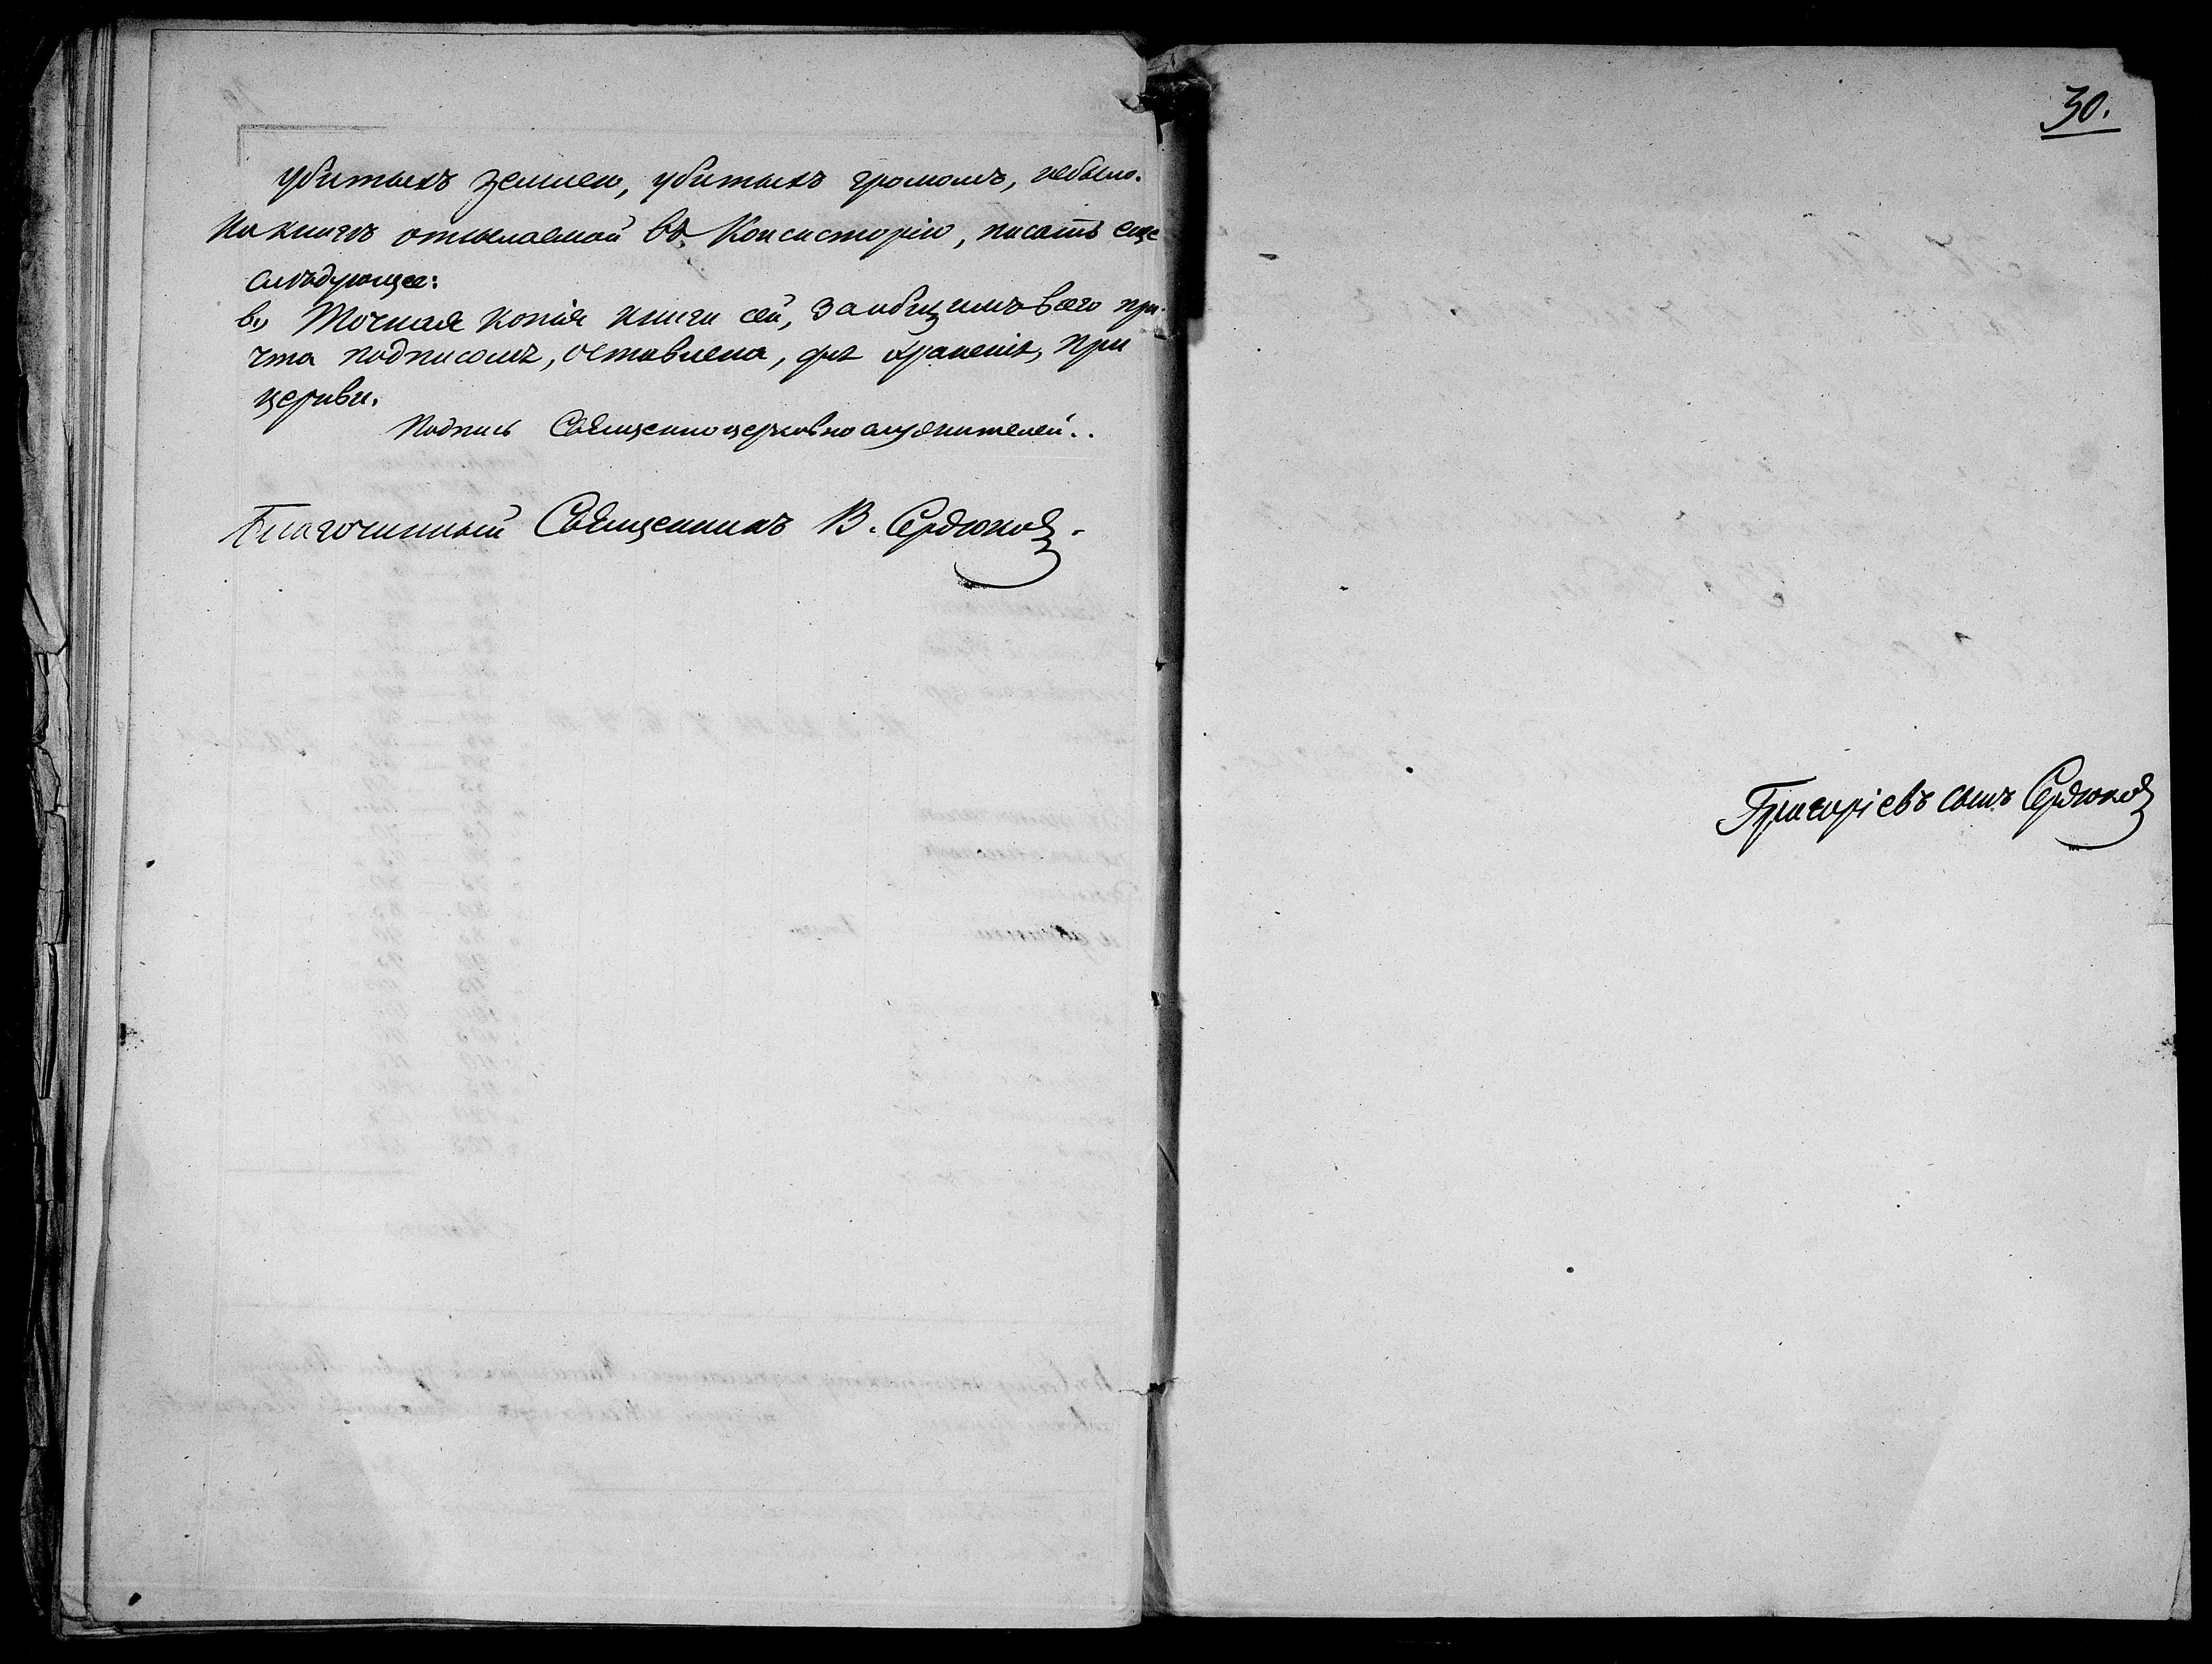 убитыхъ землею, убитыхъ громомъ, небыло.
На книгѣ отсылаемой въ Консисторію, писать еще
слѣдующее:
в.) Точная копія книги сей, за общимъ всего при-
чта подписомъ, оставлена, для храненія, при
церкви.
Подпись Священноцерковнослужителей..
Благочинный Священникъ В. Сердюковъ.
30.
Григоріевъ сынъ Сердюковъ